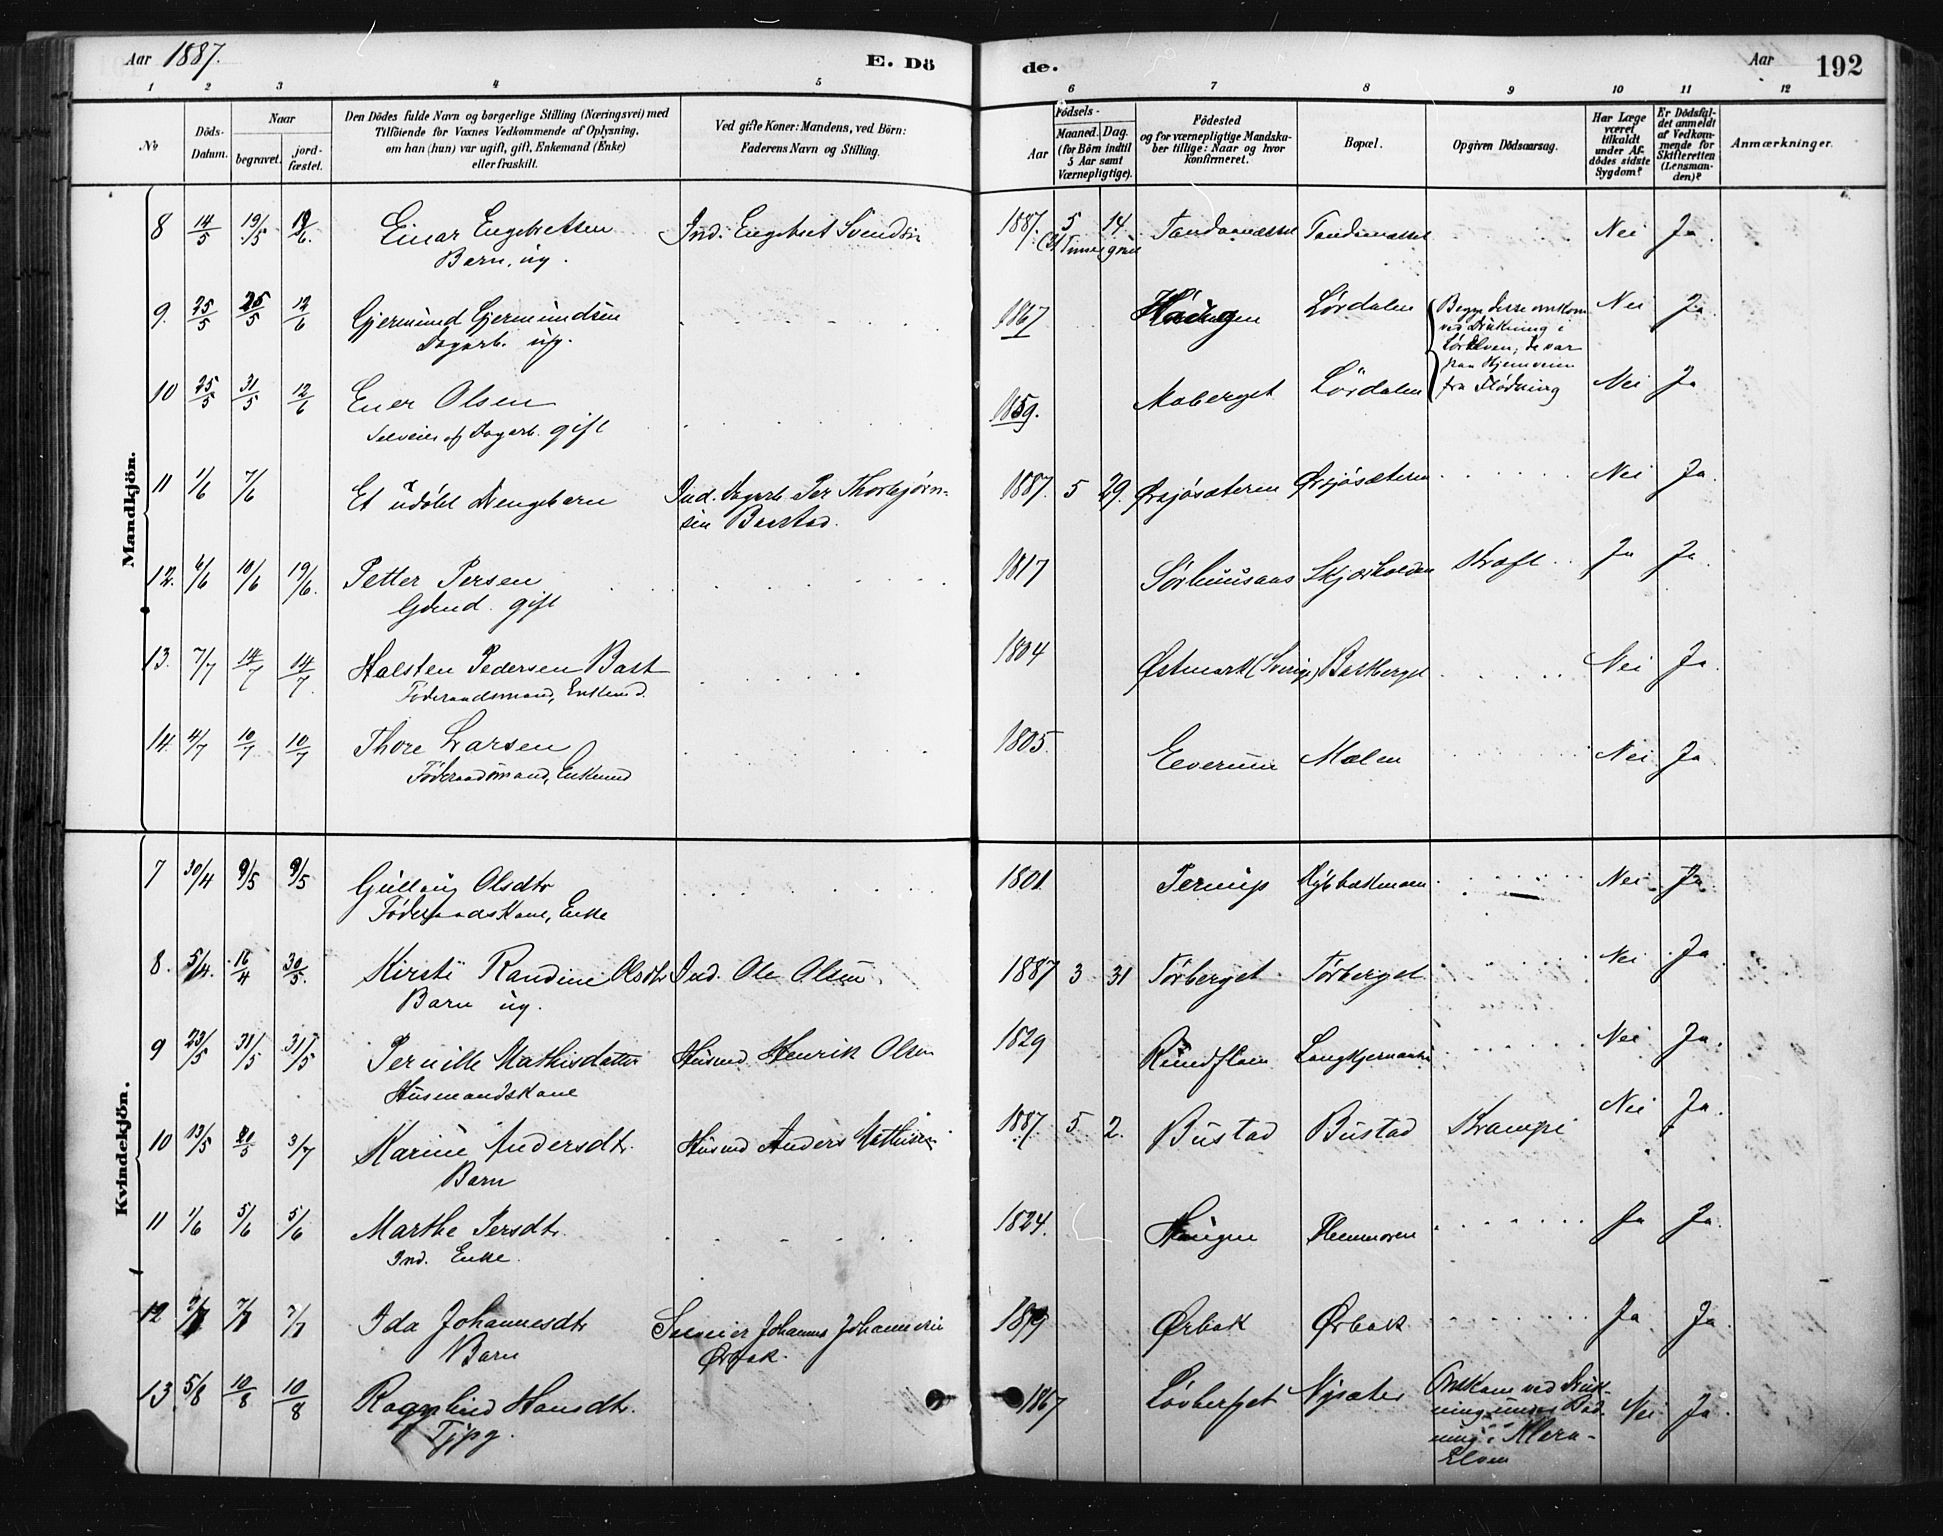 Aar 1887.
E. Dö
de.
Aar
192
1 2 3 4 5 6 7 8 9 10 11 12
No
Döds-Datum.
Naar
begravet.
jord-fæstet.
Den Dödes fulde Navn og borgerlige Stilling (Næringsvei) med
Tilföiende for Voxnes Vedkommende af Oplysning,
om han (hun) var ugift, gift, Enkemand (Enke)
eller fraskilt.
Ved gifte Koner: Mandens, ved Börn:
Faderens Navn og Stilling.
Födsels-
Aar
Maaned. Dag.
(for Börn indtil
5 Aar samt
Værnepligtige).
Födested
og for værnepligtige Mandska-
ber tillige: Naar og hvor
Konfirmeret.
Bopæl.
Opgiven Dödsaarsag.
Har Læge
været
tilkaldt
under Af-
dödes sidste
Sygdom?
Er Dödsfal-
det anmeldt
af Vedkom-
mende for
Skifteretten
(Lensman-
den)?
Anmærkninger.
Mandkjön.
8 14/5 19/5 19/6. Einar Engebretsen Ind. Engebret Svendsen 1887. 5 14. Nei Ja.
Barn, ug.
9. 25/5 25/5 12/6 Gjermund Gjermundsen 1867 Lørdalen Begge disse omkom Nei Ja.
Dagarb. ug. ved Drukning i
de var
10 25/5 31/5 12/6 Ener Olsen 1859. Moberget Lördalen fra Flødning Nei Ja
Selveier af Dagarb. gift
11 1/6 7/6 Et udøbt Drengebarn Ind. Dagarb. Per Thorbjørn- 1887. 5 29. Ørsjøsæteren Ørsjøsæteren Nei Ja.
sen Bastad.
12. 6/6 10/6 19/6. Petter Persen 1817 Ja Ja.
Gdmd. gift
13. 7/7 14/7 14/7. Halsten Pedersen Bast 1804 Østmark (Sverige) Bastberget Nei Ja.
Föderaadsmand, Enkemd.
14. 4/7 10/7 10/7 Thore Larsen 1805. Elverum Mælen Nei. Ja
Föderaadsmand, Enkemd
Kvindekjön.
7 30/4 9/5 9/5 Gullaug Olsdtr 1801 Nei Ja.
Föderaadskone, Enke
8. 5/4. 16/4 30/5. Kirsti Randine Olsdtr Ind. Ole Olsen 1887 3 31 Tørberget Tørberget Nei Ja
Barn ug.
9 23/5 31/5 31/5 Pernille Mathisdatter Husmd. Henrik Olsen 1829 Rundfloen Nei Ja.
Husmandskone
10 13/5 20/5 3/7 Karine Andersdtr. Husmd Anders Mathisen 1887. 5 2. Bustad Bustad Krampe Nei Ja.
Barn
11 1/6 5/6 5/6 Marthe Persdtr. 1824. Haugen Flermoen Ja Ja.
Ind. Enke.
12 7/7 7/7 Ida Johannesdtr Selveier Johannes Johannesen 1879 Ørbak Ørbak Ja Ja.
Barn Ørbak.
13 5/8 10/8 10/8 Ragnhild Hansdtr. 1867 Lövberget Nysæter Omkom ved Druk- Nei Ja
Tjpg. ning under Bad-
ning i Klera-
Elven